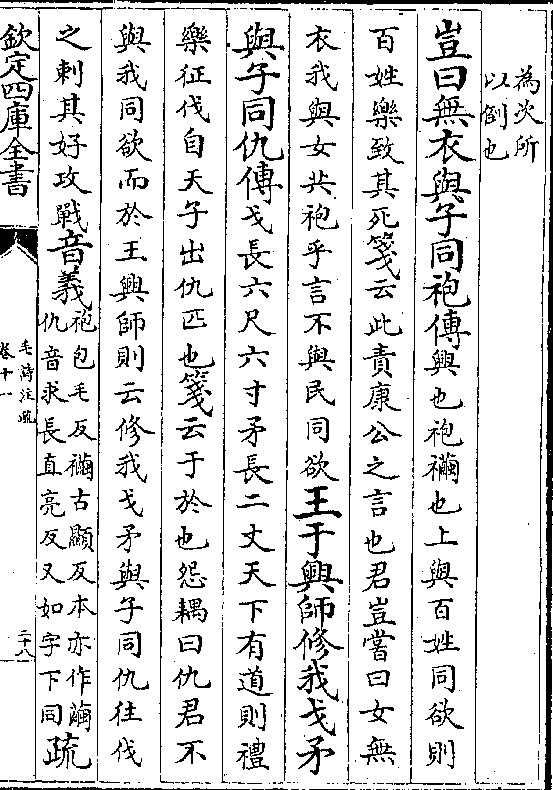 為次所
以倒也
豈曰無衣與子同袍傳興也袍襺也上與百姓同欲則
百姓樂致其死箋云此責康公之言也君豈嘗曰女無
衣我與女共袍乎言不與民同欲王于興師修我戈矛
與子同仇傳戈長六尺六寸矛長二丈天下有道則禮
樂征伐自天子出仇匹也箋云于於也怨耦曰仇君不
與我同欲而於王興師則云修我戈矛與子同仇往伐
之刺其好攻戰音義袍包毛反襺古顯反本亦作繭
仇音求長直亮反又如字下同疏
欽定四庫全書
毛詩注疏
卷十一
三十八